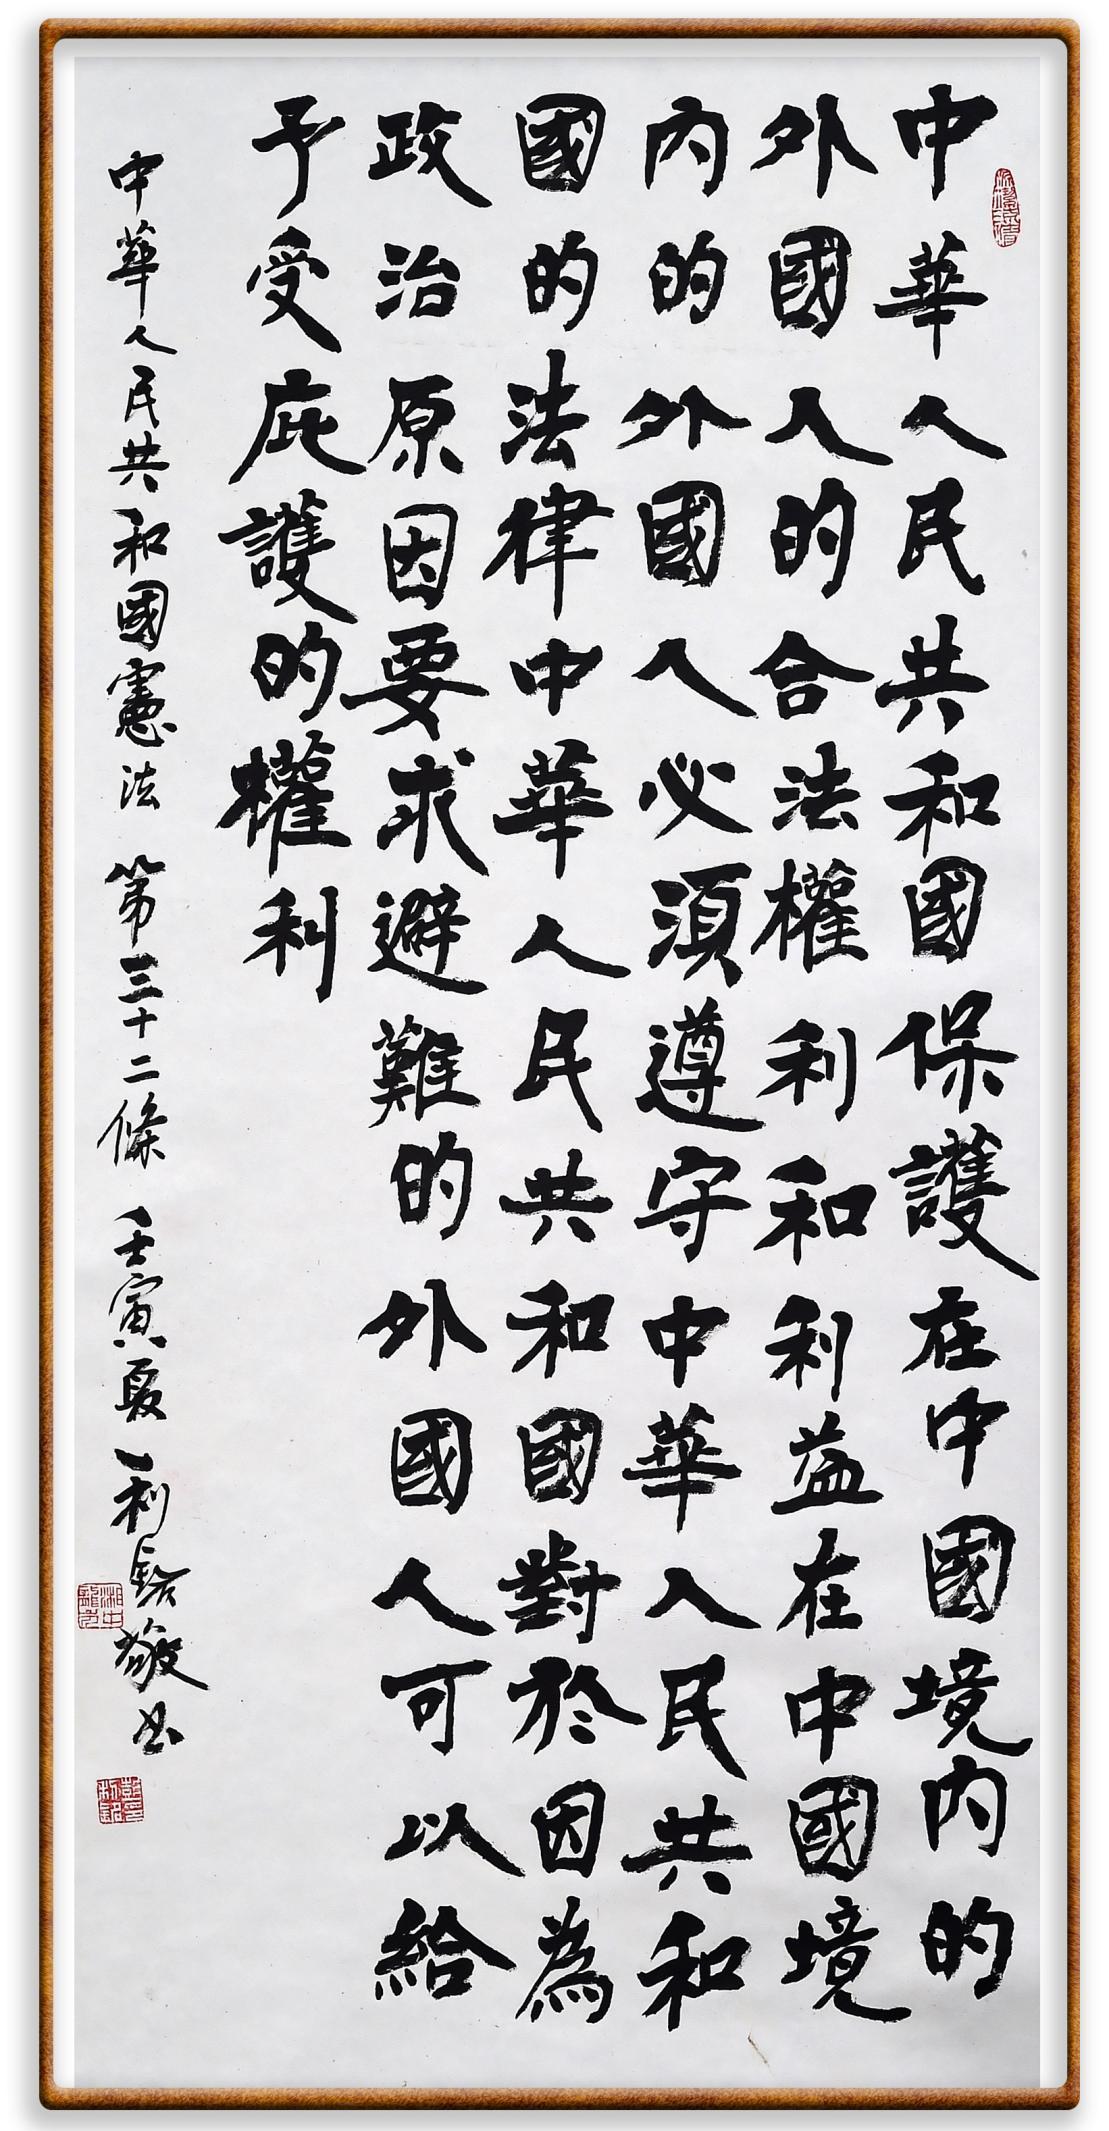 中華人民共和國保護在中國境内的
外國人的合法權利和利益在中國境
内的外國人必須遵守中華人民共和
國的法律中華人民共和國對於因為
政治原因要求避難的外國人可以給
予受庇護的權利
中華人民共和國憲法 第三十二條 壬寅夏 利銘敬书